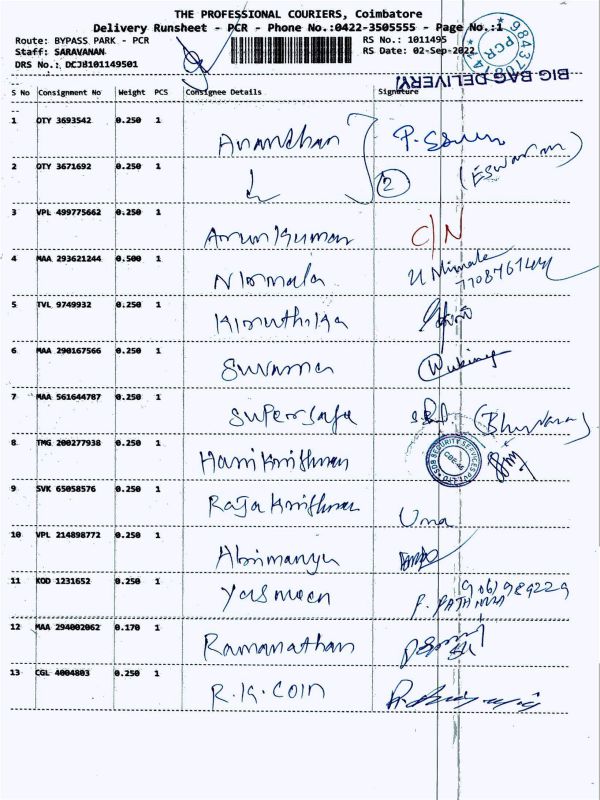 THE PROFESSIONAL COURIERS, Coimbatore
Delivery Runsheet - PCR - Phone No.:0422-3505555 - Page No.:1
Route: BYPASS PARK - PCR RS No. : 1011495
Staff: SARAVANAN RS Date: 02-Sep-2022
DRS No.: DCJB101149501
PCR
BIG BAG DELIVERY!
S No Consignment No Weight PCS Consignee Details Signature
1 OTY 3693542 0.250 1 Ananthan
2 OTY 3671692 0.250 1 2 (ESwaran)
3 VPL 499775662 0.250 1 Arun Kumar C/N
4 MAA 293621244 0.500 1 Nirmala
5 TVL 9749932 0.250 1 Kiruthika
6 MAA 290167566 0.250 1 Suvarna
7 MAA 561644787 0.250 1
8 TMG 200277938 0.250 1 Hari Krishnan SECURITY SERVICES
9 SVK 65058576 0.250 1 Raja Krishnan Uma
10 VPL 214898772 0.250 1 Abimanyu
11 KOD 1231652 0.250 1 Yasmeen
12 MAA 294002062 0.170 1 Ramanathan
13 CGL 4004803 0.250 1 R.K. COIN